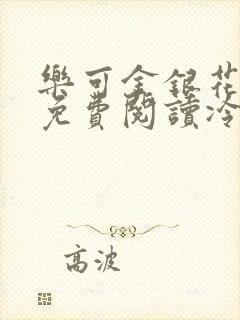 樂可金銀花
免費閱讀冷
高波